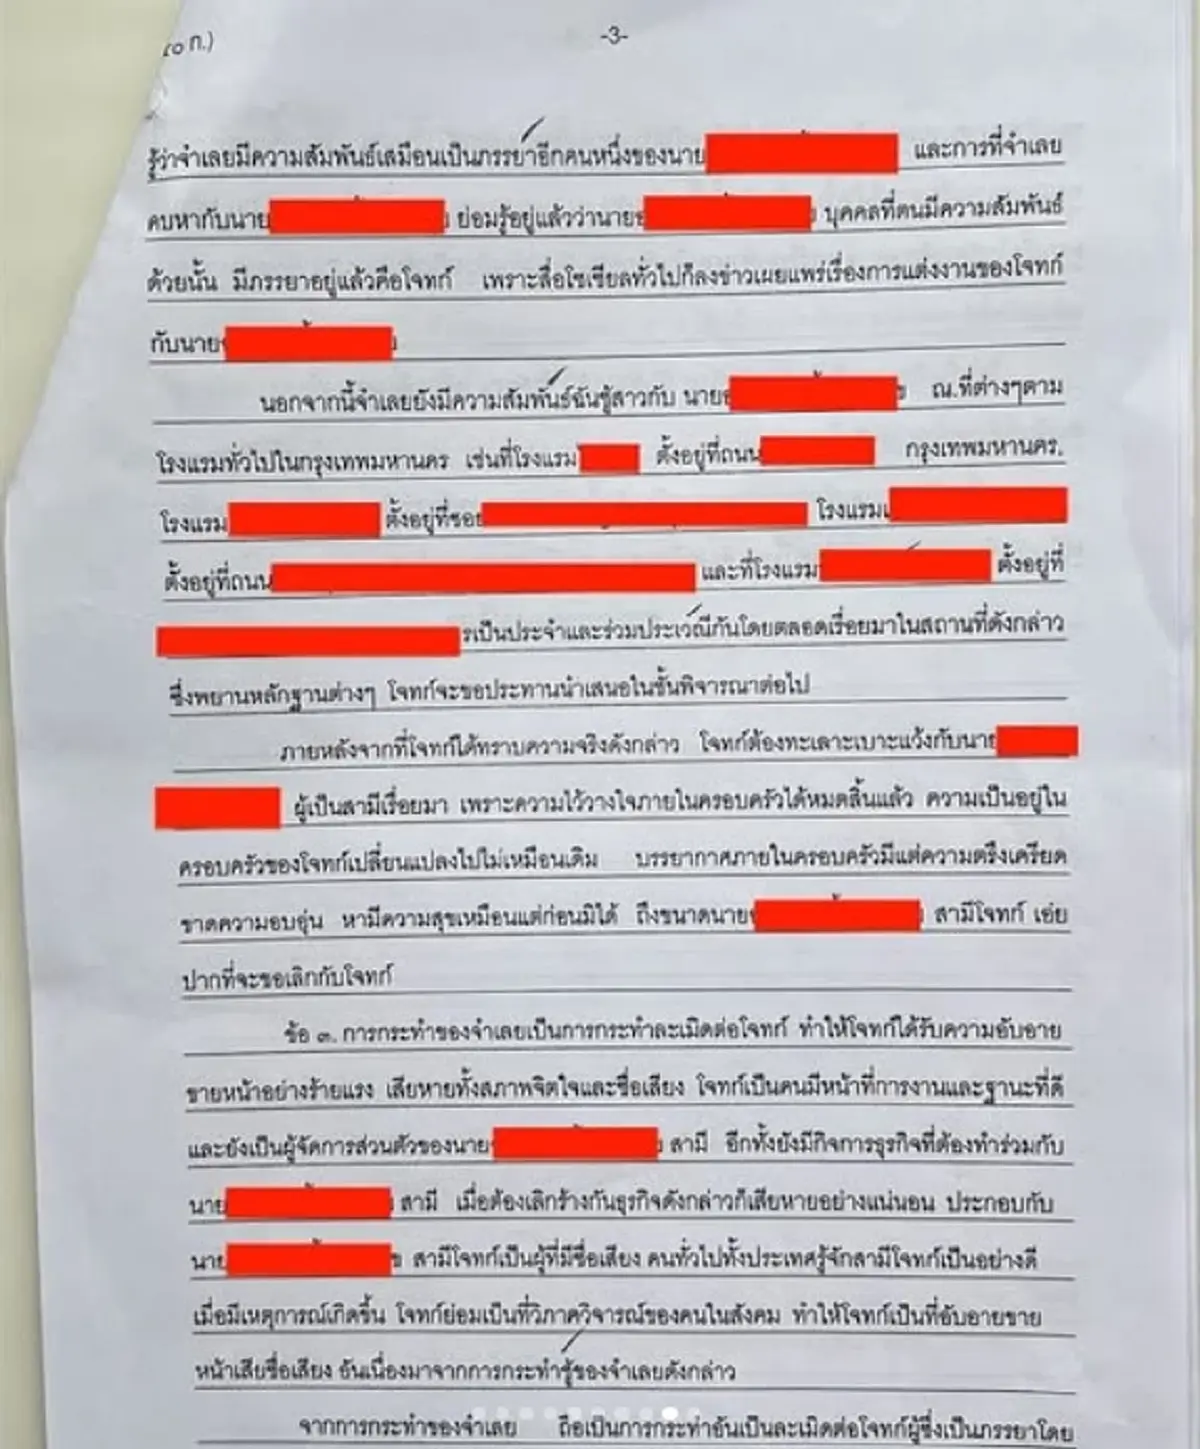 ๔๐ ก.)
-3-
รู้ว่าจำเลยมีความสัมพันธ์เสมือนเป็นภรรยาอีกคนหนึ่งของนาย และการที่จำเลย
คบหากับนาย ย่อมรู้อยู่แล้วว่านาย บุคคลที่ตนมีความสัมพันธ์
ด้วยนั้น มีภรรยาอยู่แล้วคือโจทก์ เพราะสื่อโซเชียลทั่วไปก็ลงข่าวเผยแพร่เรื่องการแต่งงานของโจทก์
กับนาย
นอกจากนี้จำเลยยังมีความสัมพันธ์ฉันชู้สาวกับ นาย ข ณ.ที่ต่างๆตาม
โรงแรมทั่วไปในกรุงเทพมหานคร เช่นที่โรงแรม ตั้งอยู่ที่ถนน กรุงเทพมหานคร.
โรงแรม ตั้งอยู่ที่ซอย โรงแรม
ตั้งอยู่ที่ถนน และที่โรงแรม ตั้งอยู่ที่
รเป็นประจำและร่วมประเวณีกันโดยตลอดเรื่อยมาในสถานที่ดังกล่าว
ซึ่งพยานหลักฐานต่างๆ โจทก์จะขอประทานนำเสนอในชั้นพิจารณาต่อไป
ภายหลังจากที่โจทก์ได้ทราบความจริงดังกล่าว โจทก์ต้องทะเลาะเบาะแว้งกับนาย
ผู้เป็นสามีเรื่อยมา เพราะความไว้วางใจภายในครอบครัวได้หมดสิ้นแล้ว ความเป็นอยู่ใน
ครอบครัวของโจทก์เปลี่ยนแปลงไปไม่เหมือนเดิม บรรยากาศภายในครอบครัวมีแต่ความตรึงเครียด
ขาดความอบอุ่น หามีความสุขเหมือนแต่ก่อนมิได้ ถึงขนาดนาย สามีโจทก์ เอ่ย
ปากที่จะขอเลิกกับโจทก์
ข้อ ๓. การกระทำของจำเลยเป็นการกระทำละเมิดต่อโจทก์ ทำให้โจทก์ได้รับความอับอาย
ขายหน้าอย่างร้ายแรง เสียหายทั้งสภาพจิตใจและชื่อเสียง โจทก์เป็นคนมีหน้าที่การงานและฐานะที่ดี
และยังเป็นผู้จัดการส่วนตัวของนาย สามี อีกทั้งยังมีกิจการธุรกิจที่ต้องทำร่วมกับ
นาย สามี เมื่อต้องเลิกร้างกันธุรกิจดังกล่าวก็เสียหายอย่างแน่นอน ประกอบกับ
นาย ข สามีโจทก์เป็นผู้ที่มีชื่อเสียง คนทั่วไปทั้งประเทศรู้จักสามีโจทก์เป็นอย่างดี
เมื่อมีเหตุการณ์เกิดขึ้น โจทก์ย่อมเป็นที่วิภาควิจารณ์ของคนในสังคม ทำให้โจทก์เป็นที่อับอายขาย
หน้าเสียชื่อเสียง อันเนื่องมาจากการกระทำรู้ของจำเลยดังกล่าว
จากการกระทำของจำเลย ถือเป็นการกระทำอันเป็นละเมิดต่อโจทก์ผู้ซึ่งเป็นภรรยาโดย